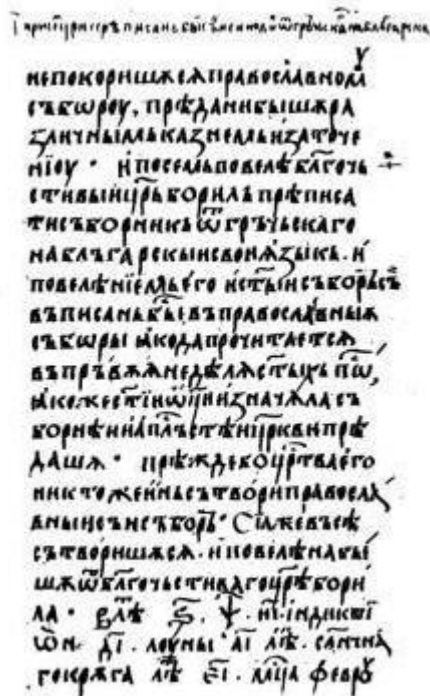 непокоришѧсѧ православномꙋ
съборѡу, прѣданибышѧра
зличныимьказнемьизаточе
нїоу · ипосемьповелѣбл҃гочь
стивыицр҃ьборилъпрѣписа
тисъборникьѿгръчьскаго
наблъгарскыисвоиѧзыкь. и
повелѣнїемьего ист҃ыисъборьсъ
въписаньбы҇ въправославныѧ
съборы ꙗкодапрочитаетсѧ
въпръвѫѧнедѣлѧст҃ыхьпѡ҇
ꙗкожест҃їиѡ҃циизначѧласъ
борнѣиапл҃ъстѣицр҃квипрѣ
дашѧ · прѣждебоцр҇тваего
никтожеинь сътвориправосла
вныисъисъборь· Сїажевъсѣ
сътворишѧсѧ. иповелѣнабы
шѧѿбл҃гочьстивагоцр҃ѣбори
ла · влѣ҇ ҂ѕ҃. ѱ҃. и҃і. индиктї
ѡн· д҃і. лоуны а҃і лѣ҇. сл҃нчна
гокрѫга лѣ҇ е҃і. мц҇а феврꙋ